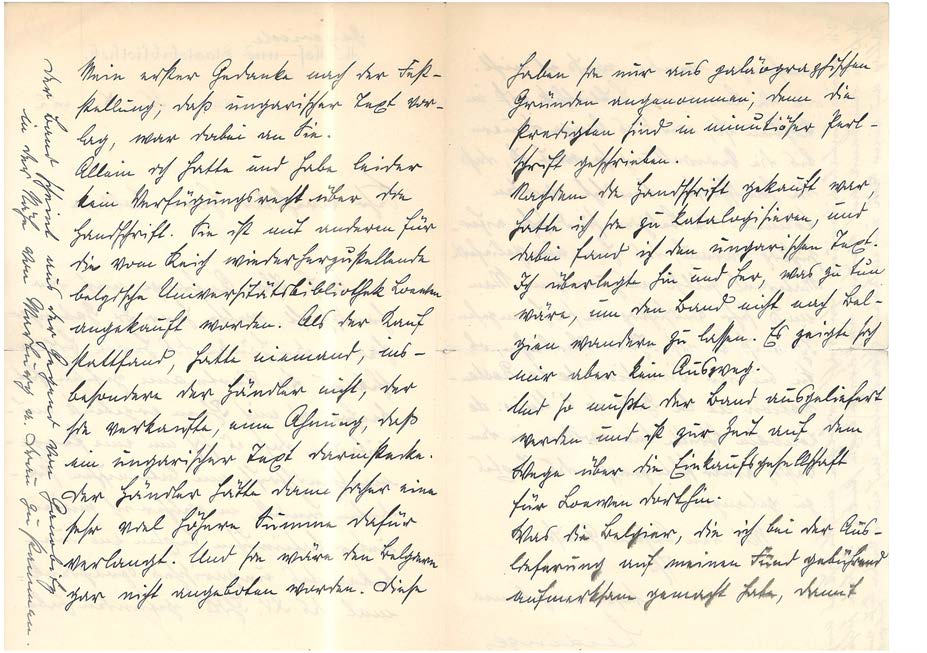 Mein erster Gedanke nach der Fest-
stellung, daß ungarischer Text vor-
lag, war dabei an Sie.
Allein ich hatte und habe leider
kein Verfügungsrecht über die
Handschrift. Sie ist mit anderem für
die vom Reich wiederherzustellende
belgische Universitätsbibliothek Loewen
angekauft worden. Als der Kauf
stattfand, hatte niemand, ins-
besondere der Händler nicht, der
sie verkaufte, eine Ahnung, daß
ein ungarischer Text darinstecke.
Der Händler hätte dann sicher eine
sehr viel höhere Summe dafür
verlangt. Und sie wäre den Belgiern
gar nicht angeboten worden. Diese
Der Band scheint aus der Gegend von Gonobitz
in der Nähe von Marburg a. Drau zu stammen.
haben sie nur aus paläographischen
Gründen angenommen; denn die
Predigten sind in minutiöser Perl-
schrift geschrieben.
Nachdem die Handschrift gekauft war,
hatte ich sie zu katalogisieren, und
dabei fand ich den ungarischen Text.
Ich überlegte hin und her, was zu tun
wäre, um den Band nicht nach Bel-
gien wandern zu lassen. Es zeigte sich
mir aber kein Ausweg.
Und so mußte der Band ausgeliefert
werden und ist zur Zeit auf dem
Wege über die Einkaufsgesellschaft
für Loewen dorthin.
Was die Belgier, die ich bei der Aus-
lieferung auf meinen Fund gebührend
aufmerksam gemacht habe, damit